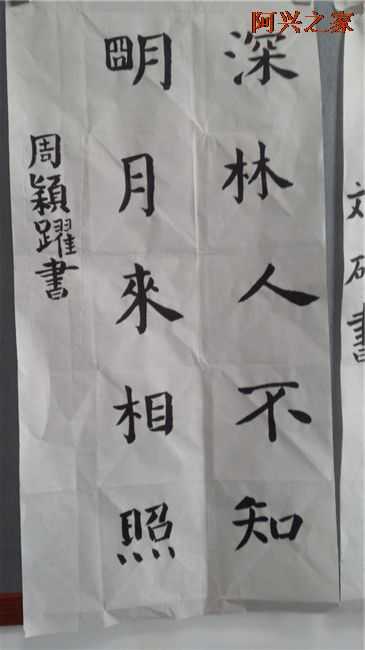 阿兴之家
深林人不知
朙月來相照
周穎躍書